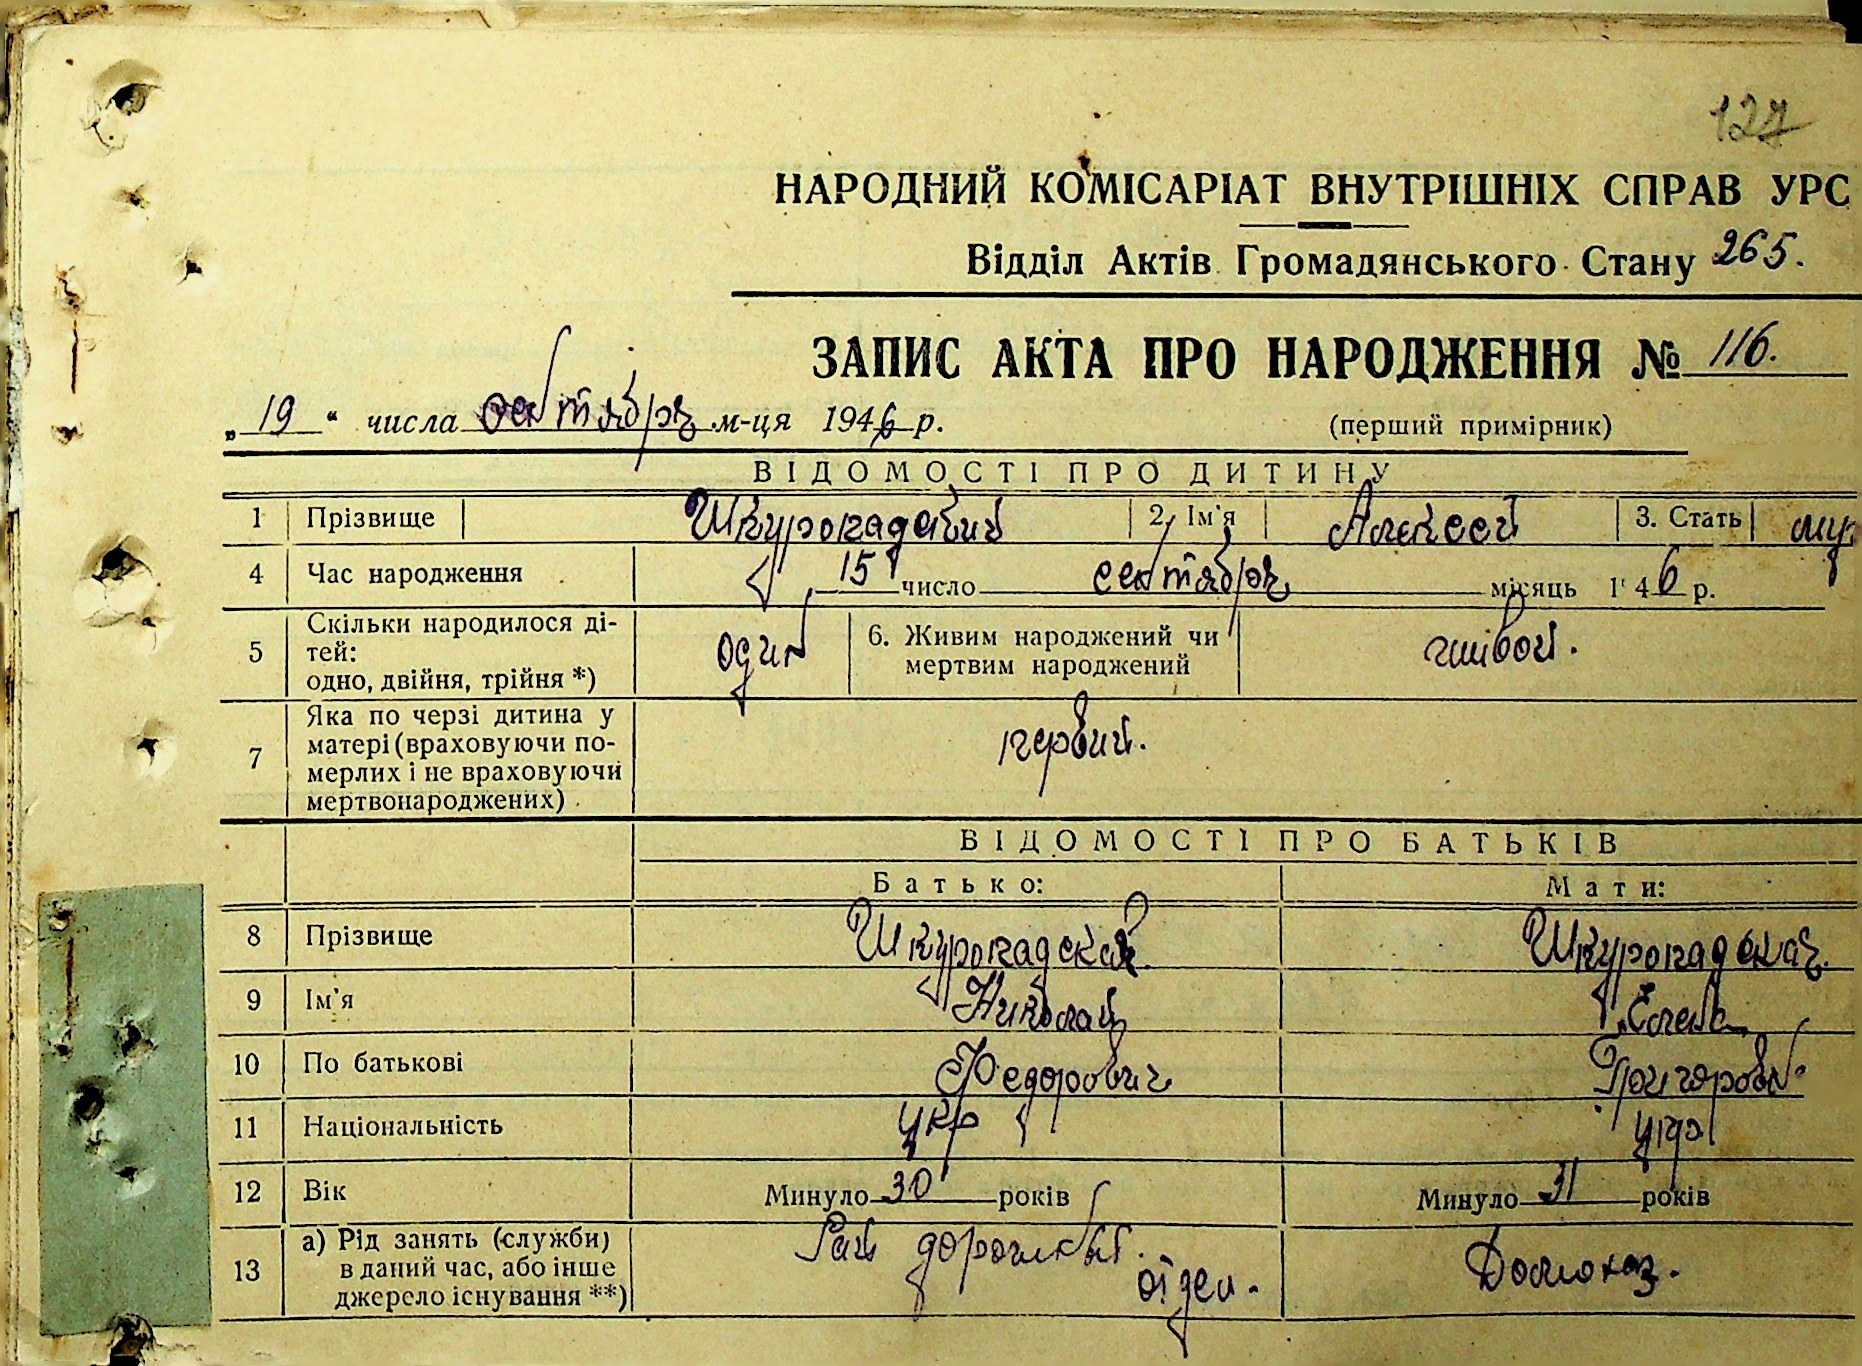 127
НАРОДНИЙ КОМІСАРІАТ ВНУТРІШНІХ СПРАВ УРС
Відділ Актів Громадянського Стану 265.
ЗАПИС АКТА ПРО НАРОДЖЕННЯ № 116.
„19“ числа сентября м-ця 1946 р. (перший примірник)
ВІДОМОСТІ ПРО ДИТИНУ
1 Прізвище 2. Ім'я Алексей 3. Стать муж
4 Час народження 15 число сентября місяць 1946 р.
5 Скільки народилося ді-
тей:
одно, двійня, трійня *) один 6. Живим народжений чи
мертвим народжений живой.
7 Яка по черзі дитина у
матері (враховуючи по-
мерлих і не враховуючи
мертвонароджених) первий.
ВІДОМОСТІ ПРО БАТЬКІВ
Батько: Мати:
8 Прізвище Шкуропадской Шкуропадская.
9 Ім'я Николай Елена
10 По батькові Федорович Григоровн.
11 Національність укр укр
12 Вік Минуло 30 років Минуло 31 років
13 а) Рід занять (служби)
в даний час, або інше
джерело існування **) Рай дорожный отдел. Домохоз.